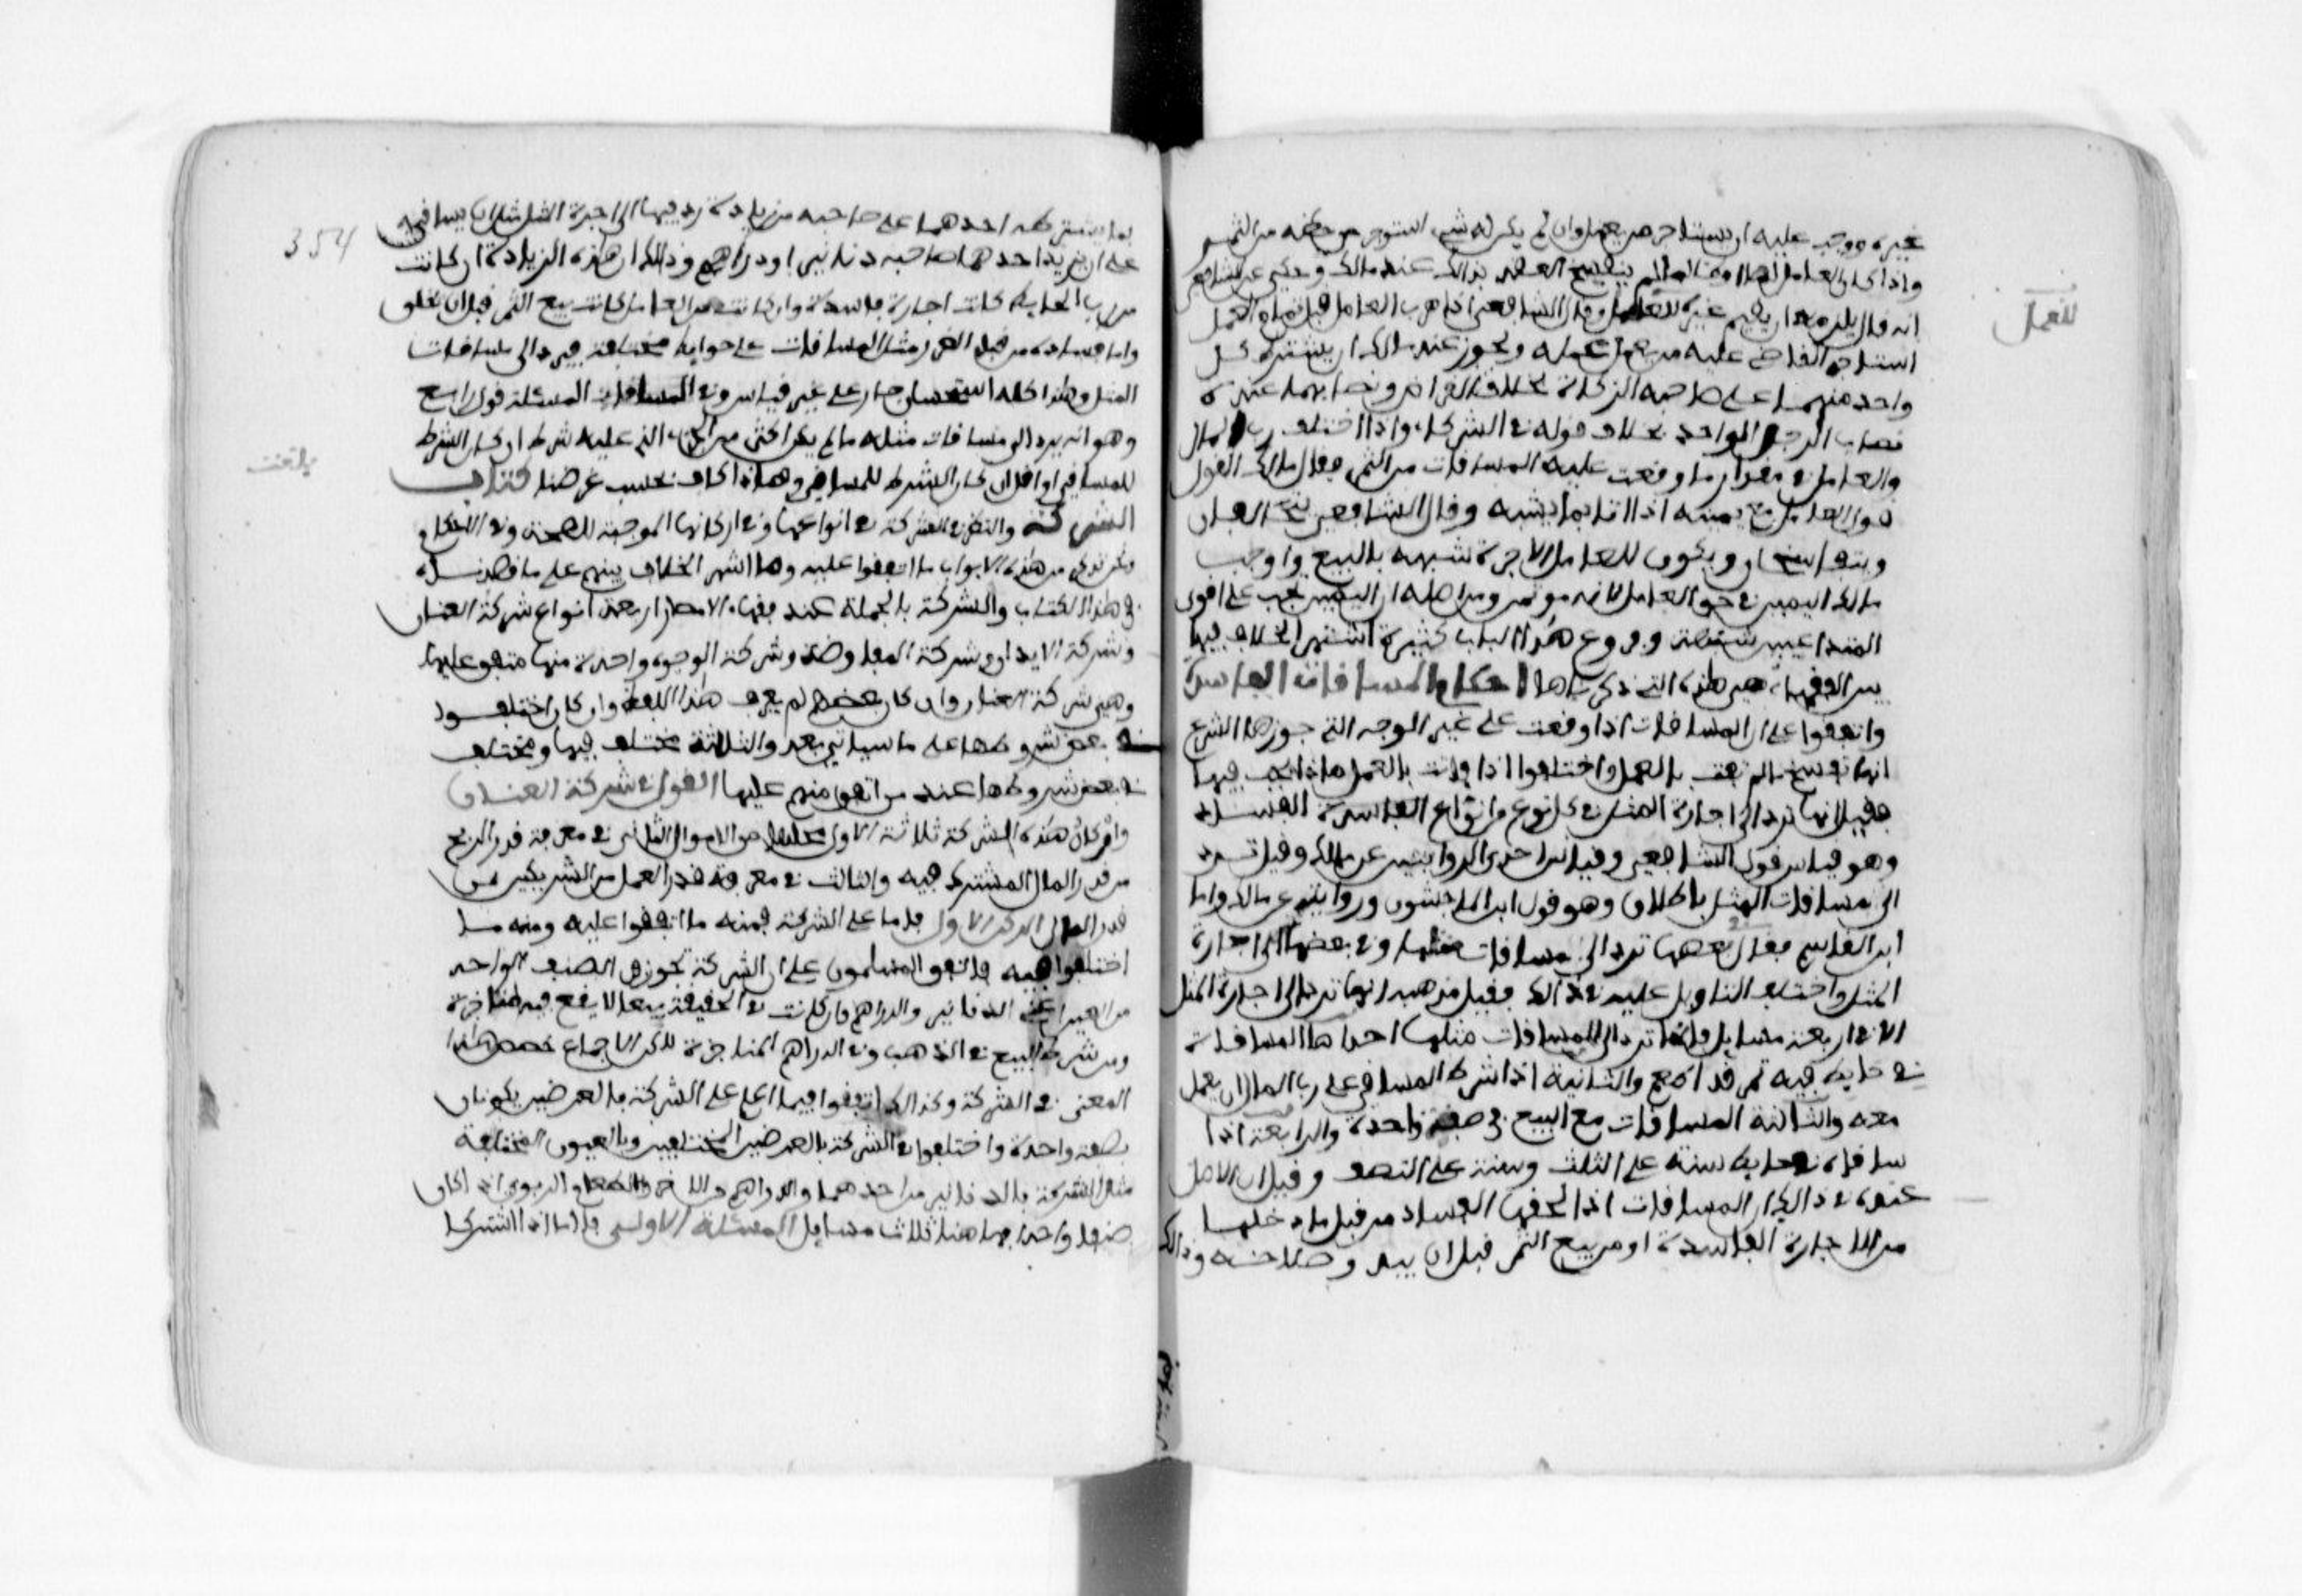 غيره ووجب عليه ان يستاجر من يعمل وان لم يكن له شيء استوجر من حظه من الثمر
واذا كان العامل لصا او ظالما لم ينفسخ العقد بذالك عند مالك وحكي عن الشافعي
انه قال يلزمه ان يقيم غيره للعمل وقال الشافعي اذا هرب العامل قبل تمام العمل
استاجر القاضي عليه من يعمل عمله ويجوز عند مالك ان يشترط كل
واحد منهما على صاحبه الزكاة بخلاف القراض ونصابهما عنده
نصاب الرجل الواحد بخلاف قوله في الشركا واذا اختلف رب المال
والعامل في مقدار ما وقعت عليه المساقات من الثمر فقال مالك القول
قول العامل مع يمينه اذا اتا بما يشبه وقال الشافعي يتحالفان
ويتفاسخان ويكون للعامل الاجرة شبهه بالبيع واوجب
مالك اليمين في حق العامل لانه موتمن ومن اصله ان اليمين تجب على اقوى
المتداعيين شبهة وفروع هذا الباب كثيرة اشتهر الخلاف فيها
بين الفقهاء هي هذه التي ذكرناها احكام المساقاة الفاسدة
واتفقوا على ان المساقات اذا وقعت على غير الوجه التي جوزها الشرع
انها تفسخ ما لم تفت بالعمل واختلفوا اذا فاتت بالعمل ماذا يجب فيها
فقيل انها ترد الى اجارة المثل في كل نوع من انواع الفاسدة الفساد
وهو قياس قول الشافعي وقياس احدى الروايتين عن مالك وقيل ترد
الى مساقات المثل باطلاق وهو قول ابن الماجشون وروايته عن مالك واما
ابن القاسم فقال في بعضها ترد الى مساقات مثلها وفي بعضها الى اجارة
المثل واختلف التاويل عليه في ذالك فقيل مذهبه انها ترد الى اجارة المثل
الا في اربعة مسايل فانها ترد الى المساقات مثلها احداها المساقاة
في حايط فيه تمر قد اطعم والثانية اذا شرط المساقي على رب المال ان يعمل
معه والثالثة المساقات مع البيع في صفقة واحدة والرابعة اذا
ساقاه في حايط سنة على الثلث وسنة على النصف وقيل ان الاصل
عنده في ذالك ان المساقات اذا لحقها الفساد من قبل ما دخلها
من الاجارة الفاسدة او من بيع الثمر قبل ان يبدو صلاحه وذالك
للعمل
354
بما يشترطه احدهما على صاحبه من زيادة رد فيها الى اجرة المثل مثل ان يساقيه
على ان يزيد احدهما صاحبه دنانير او دراهم وذالك ان هذه الزيادة ان كانت
من رب الحايط كانت اجارة فاسدة وان كانت من العامل كانت بيع الثمر قبل ان يخلق
واما فساده من قبل الغرر مثل المساقات على حوايط مختلفة فيرد الى مساقات
المثل وهذا كله استحسان جار على غير قياس وفي المسئلة قول رابع
وهو انه يرد الى مساقات مثله ما لم يكن اكثر من الجزء الذي عليه شرط ان كان الشرط
للمساقي او اقل ان كان الشرط للمساقى وهذا كاف بحسب غرضنا كتاب
الشركة والنظر في الشركة في انواعها وفي اركانها الموجبة للصحة وفي الاحكام
ونحن نذكر من هذه الابواب ما اتفقوا عليه وما اشتهر الخلاف بينهم على ما قصدناه
في هذا الكتاب والشركة بالجملة عند فقهاء الامصار اربعة انواع شركة العنان
وشركة الابدان وشركة المفاوضة وشركة الوجوه واحدة منها متفق عليها
وهي شركة العنان وان كان بعضهم لم يعرف هذا اللفظ وان كان اختلفوا
في بعض شروطها على ما سياتي بعد والثلاثة مختلف فيها ومختلف
في بعض شروطها عند من اتفق منهم عليها القول في شركة العنان
واركان هذه الشركة ثلاثة الاول محلها من الاموال الثاني في معرفة قدر الربح
من قدر المال المشترك فيه والثالث في معرفة قدر العمل من الشريكين من
قدر المال الركن الاول فاما محل الشركة فمنه ما اتفقوا عليه ومنه ما
اختلفوا فيه فاتفق المسلمون على ان الشركة تجوز في الصنف الواحد
من العين اعني الدنانير والدراهم وان كانت في الحقيقة بيعا لا يقع فيه مناجزة
ومن شرط البيع في الذهب وفي الدراهم المناجزة لاكن الاجماع خصص هذا
المعنى في الشركة وكذالك اتفقوا فيما اعلم على الشركة بالعرضين يكونان
بصفة واحدة واختلفوا في الشركة بالعرضين المختلفين وبالعيون المختلفة
مثل الشركة بالدنانير من احدهما والدراهم من الاخر وبالطعام الربوي اذا كان
صنفا واحدا فها هنا ثلاث مسايل المسئلة الاولى فاما اذا اشتركا